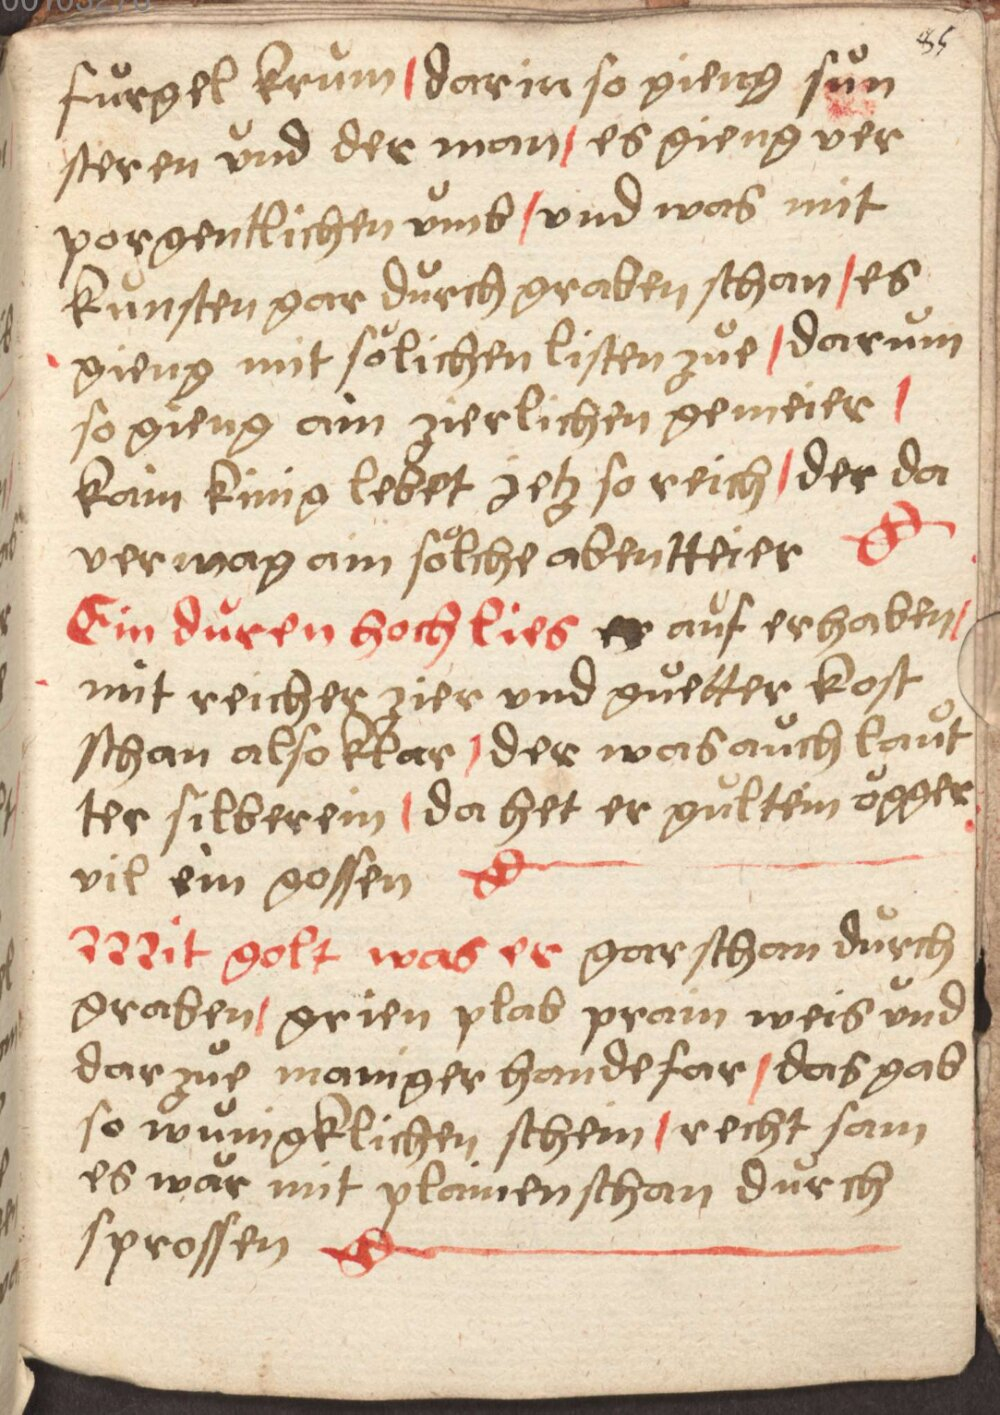 85
fůrgel krům / dar in so gieng sůn
steren vnd der man / es gieng ver
porgentlichen vmb / vnd was mit
kůnsten gar důrch graben schan / es
gieng mit sölichen listen zůe / darům
so gieng ain zierlichen gemeier /
kain king lebet jetz so reich / der da
vermag ain sölche abentteier
Ein důren hoch lies er aůf erhaben /
mit reicher zier vnd gůetter kost
schan also klar / der was aůch laůt
ter silberein / da het er gůltein ögger
vil ein gossen
Mit golt was er gar schan důrch
graben / grien plab prain weis vnd
dar zůe maniger hande far / das gab
so wůnigklichen schein / recht sam
es wär mit plaimen schan důrch
sprossen